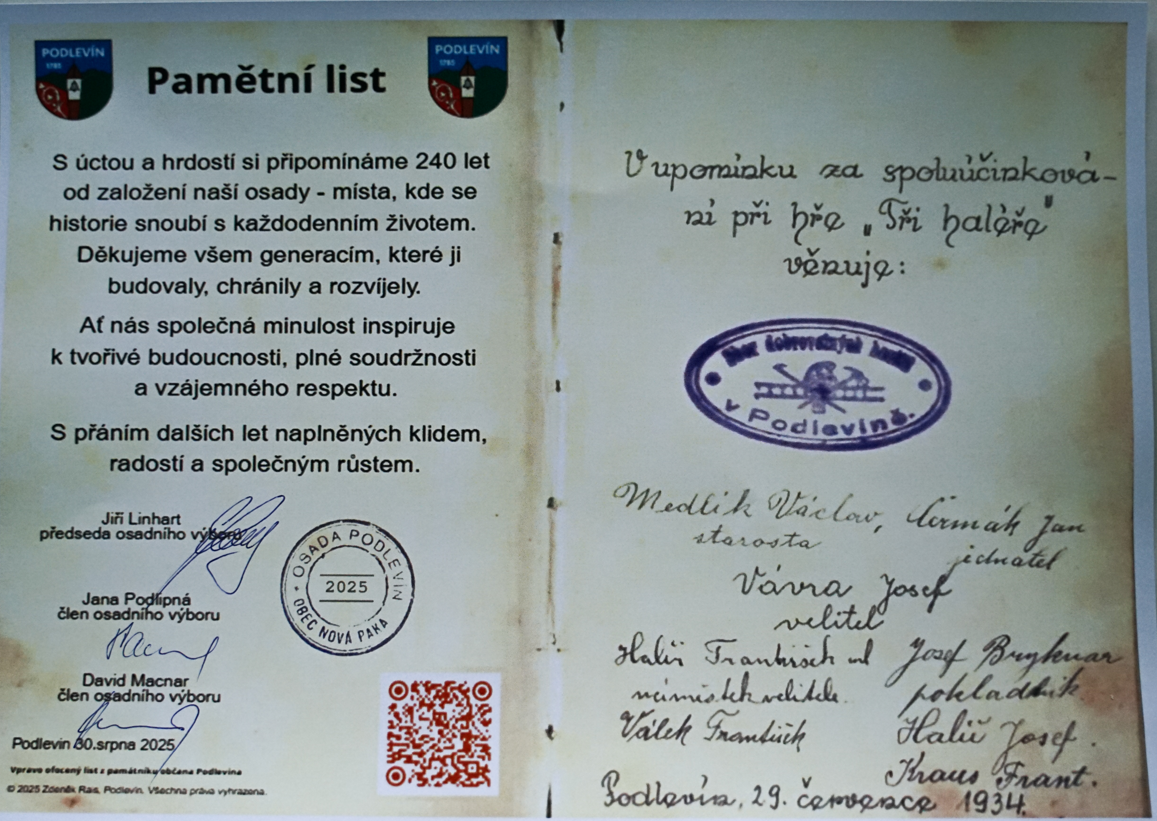 PODLEVÍN
1785
Pamětní list
PODLEVÍN
1785
S úctou a hrdostí si připomínáme 240 let
od založení naší osady - místa, kde se
historie snoubí s každodenním životem.
Děkujeme všem generacím, které ji
budovaly, chránily a rozvíjely.
Ať nás společná minulost inspiruje
k tvořivé budoucnosti, plné soudržnosti
a vzájemného respektu.
S přáním dalších let naplněných klidem,
radostí a společným růstem.
Jiří Linhart
předseda osadního výboru
Jana Podlipná
člen osadního výboru
David Macnar
člen osadního výboru
OSADA PODLEVÍN
2025
OBEC NOVÁ PAKA
Podlevín 30.srpna 2025
Vpravo ofocený list z památníku občana Podlevína
© 2025 Zdeněk Rais, Podlevín. Všechna práva vyhrazena.
V upomínku za spoluúčinková-
ní při hře „Tři haléře"
věnuje:
Sbor dobrovolných hasičů
v Podlevíně.
Medlík Václav, Čermák Jan
starosta jednatel
Vávra Josef
velitel
Halíř František ml Josef Bryknar
náměstek velitele. pokladník
Válek František Halíř Josef.
Kraus Frant.
Podlevín, 29. července 1934.